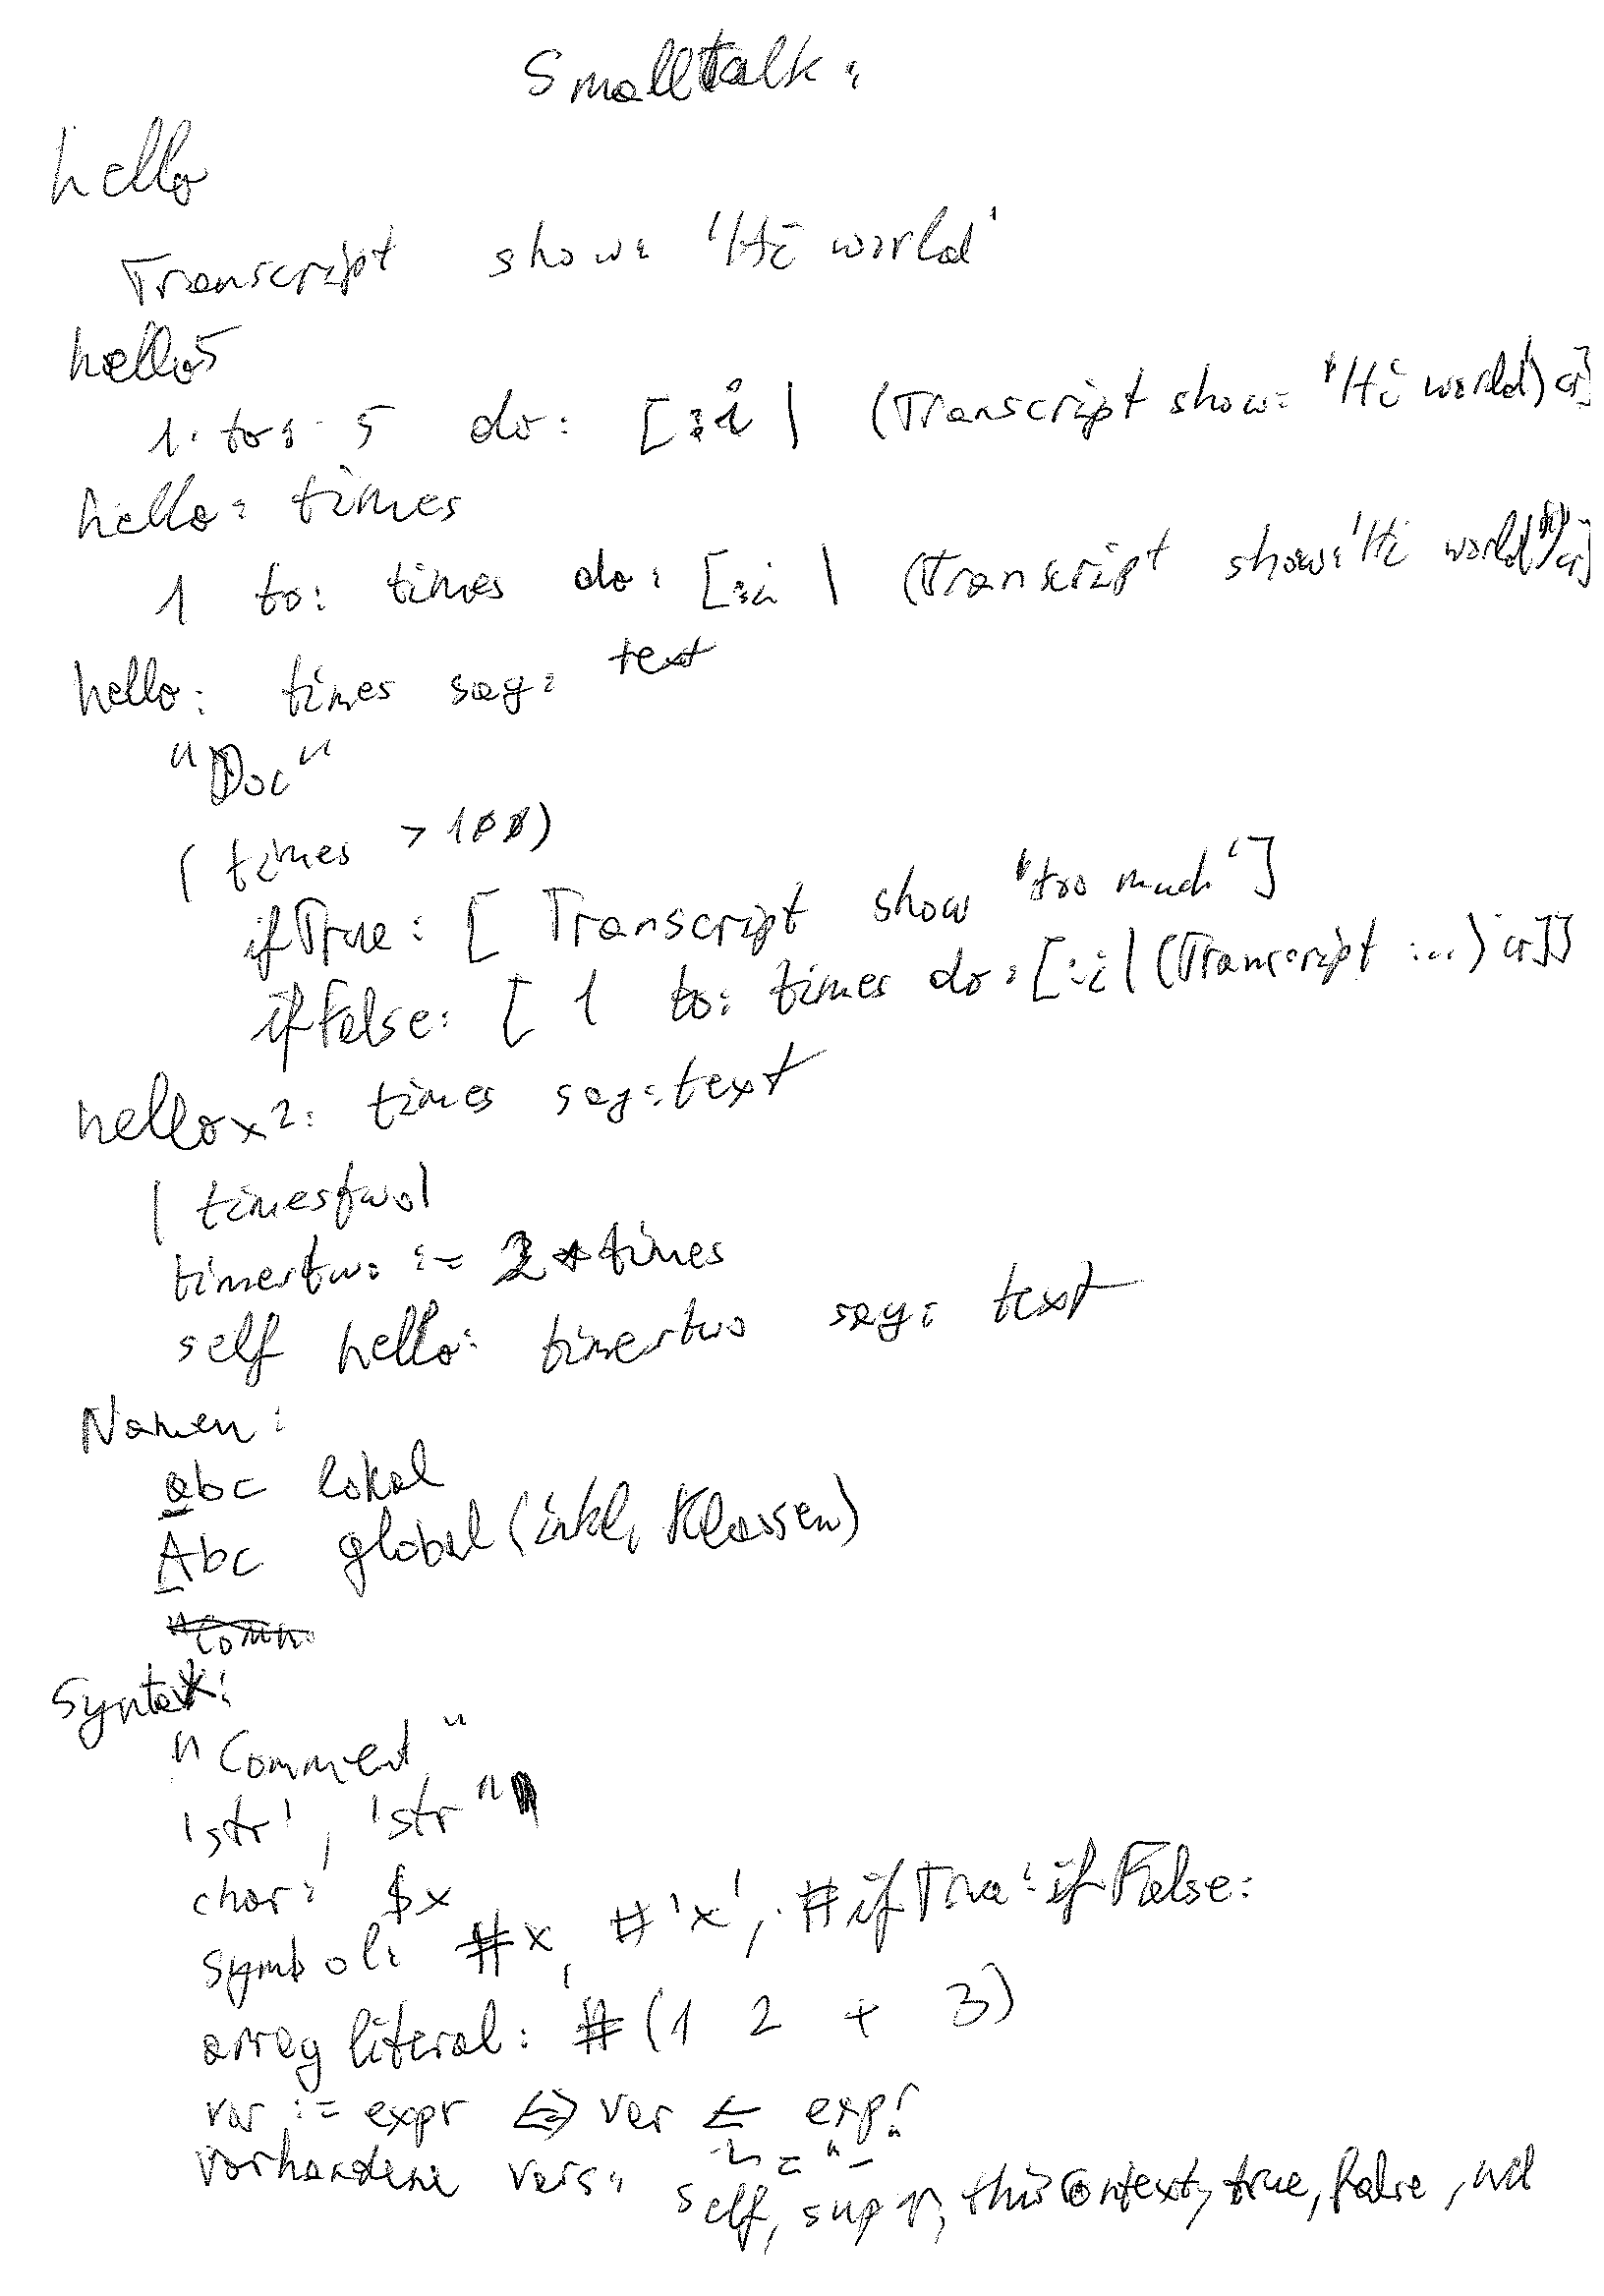 Smalltalk:
hello
Transcript show: 'Hi world'
hello5
1 to: 5 do: [:i | (Transcript show: 'Hi world') cr]
hello: times
1 to: times do: [:i | (Transcript show: 'Hi world') cr]
hello: times say: text
"Doc"
(times > 100)
ifTrue: [ Transcript show 'too much' ]
ifFalse: [ 1 to: times do: [:i | (Transcript ...) cr]]
hellox2: times say: text
| timestwo |
timestwo := 2 * times
self hello: timestwo say: text
Namen:
abc lokal
Abc global (inkl. Klassen)
"Comm
Syntax:
"Comment"
'str', 'str''
char: $x
symbol: #x, #'x', #ifTrue:ifFalse:
array literal: #(1 2 + 3)
var := expr <=> var ← expr
= "_"
vorhandene vars: self, super, thisContext, true, false, nil